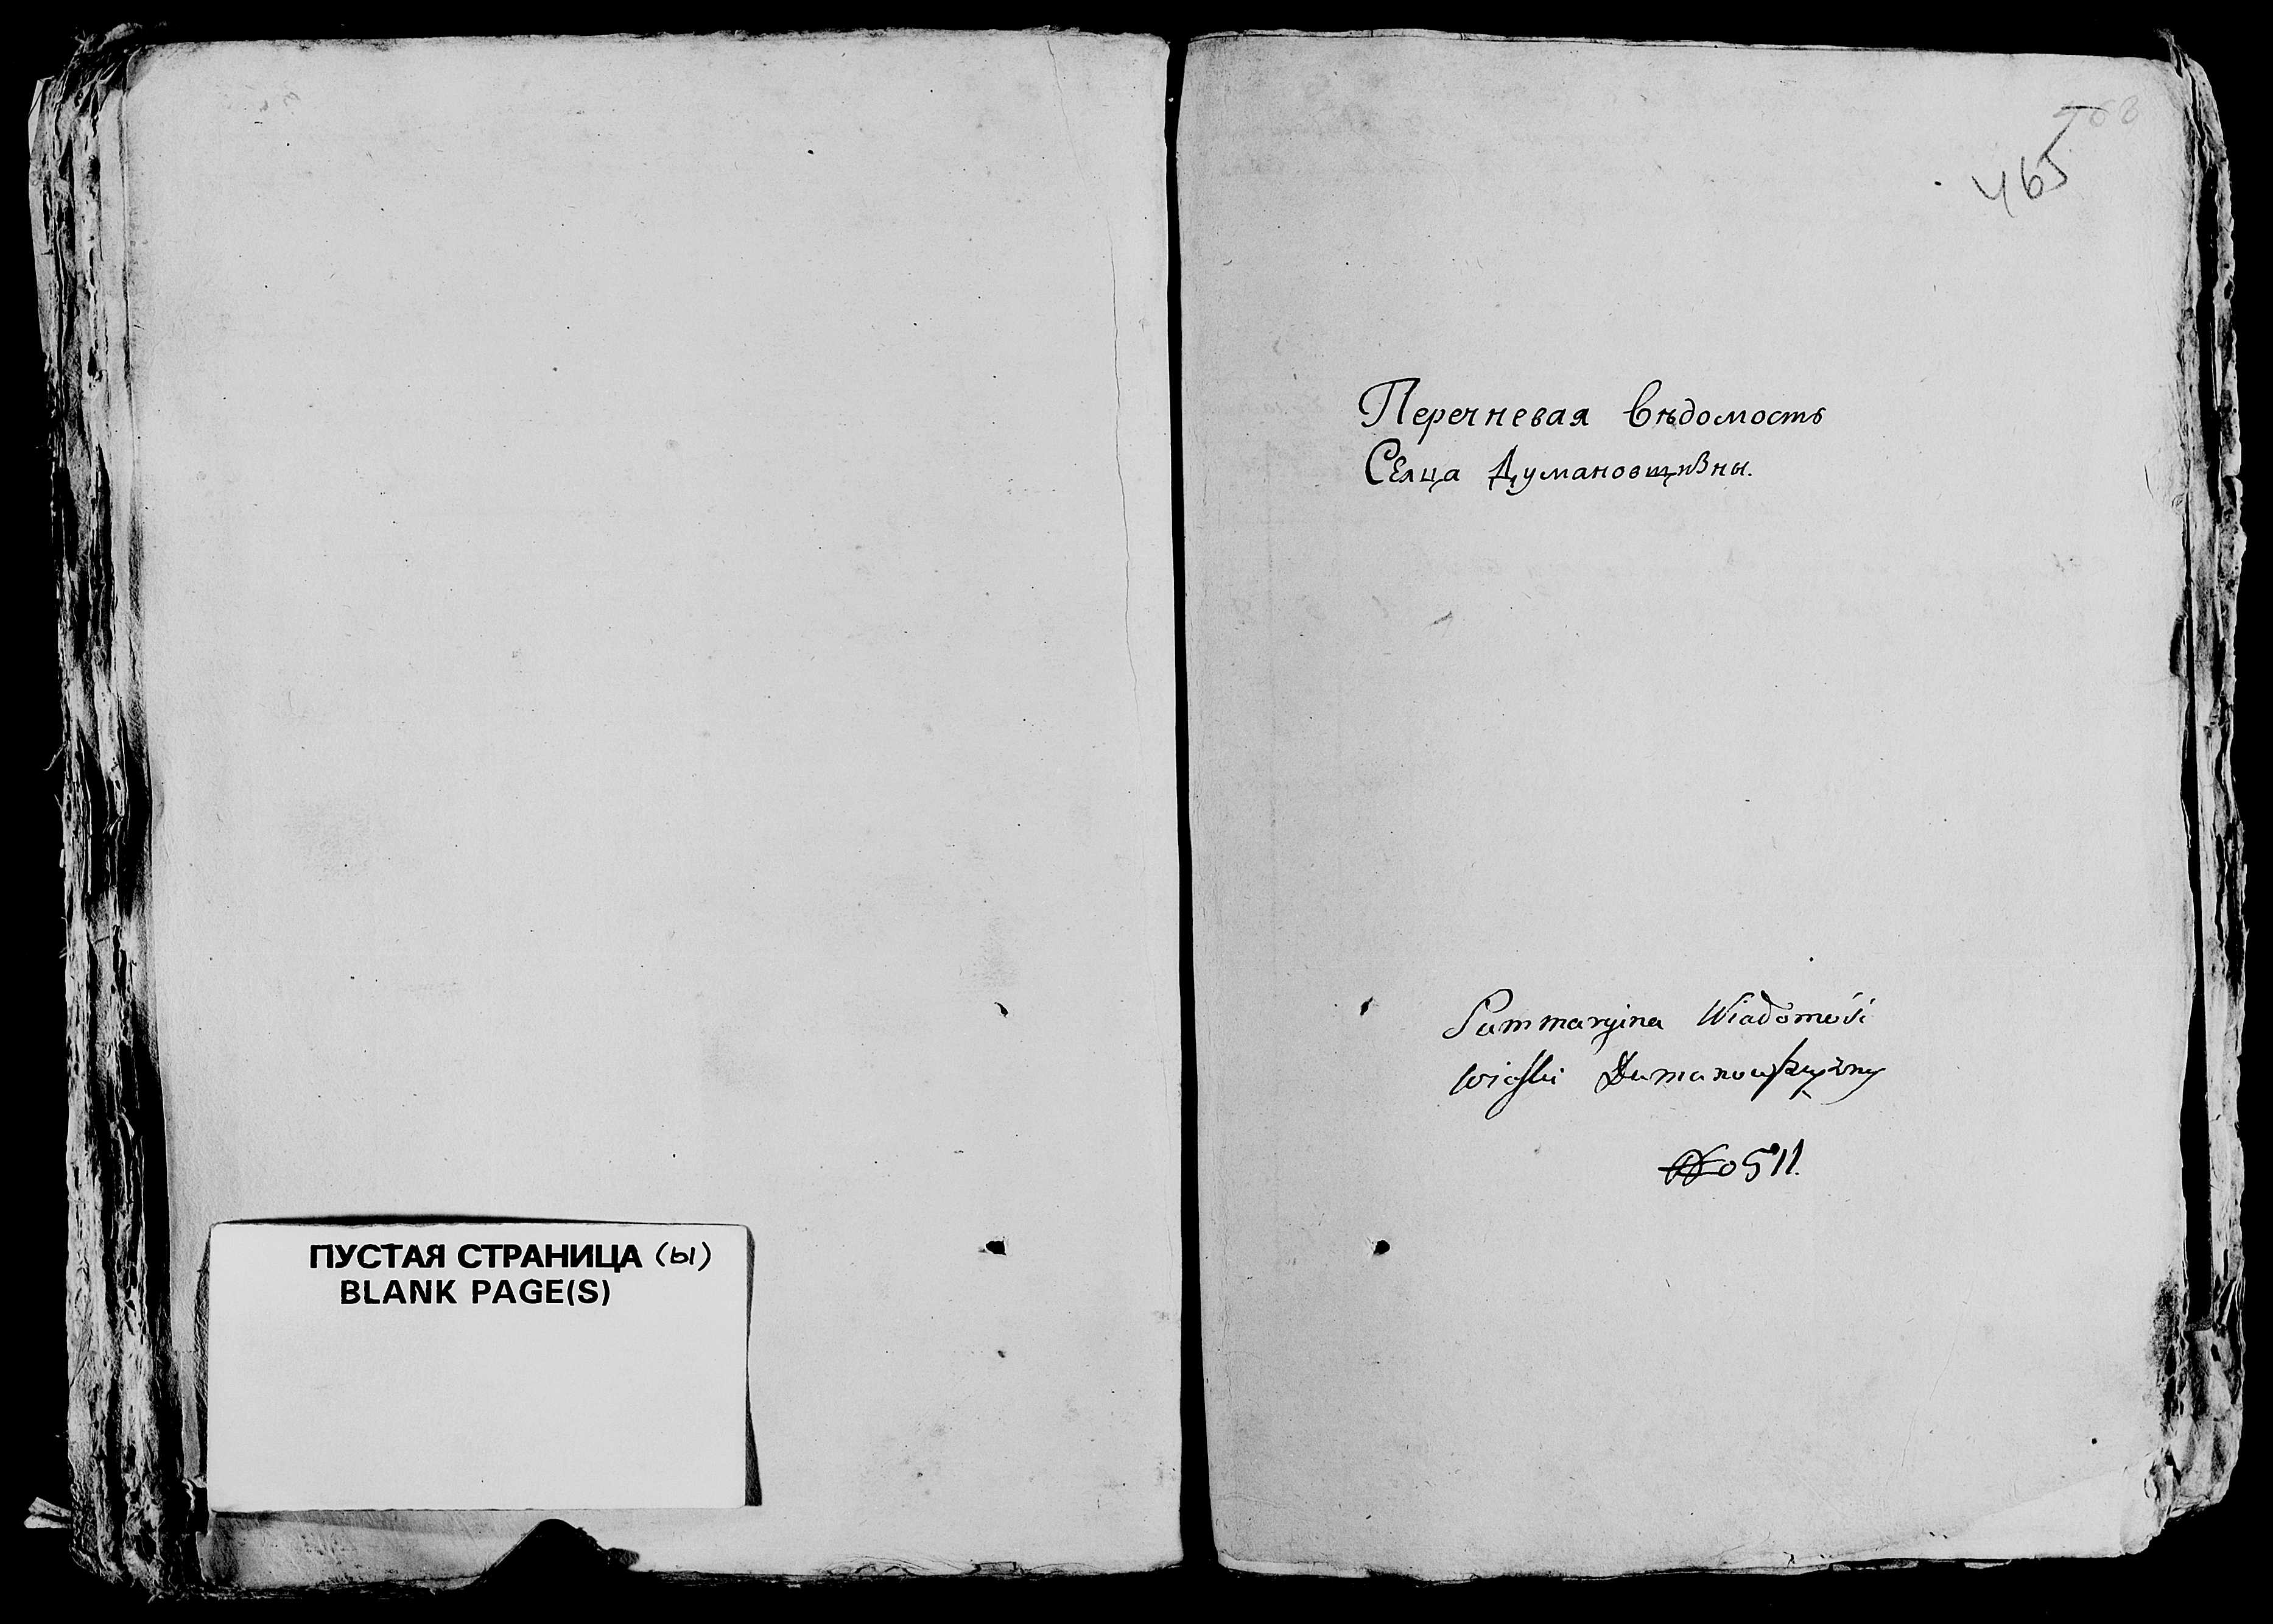 ПУСТАЯ СТРАНИЦА (ы)
BLANK PAGE(S)
465
Перечневая вѣдомость
Селца Думановщизны.
Summaryina Wiadomość
wioski Dumanowszczyzny
No 511.